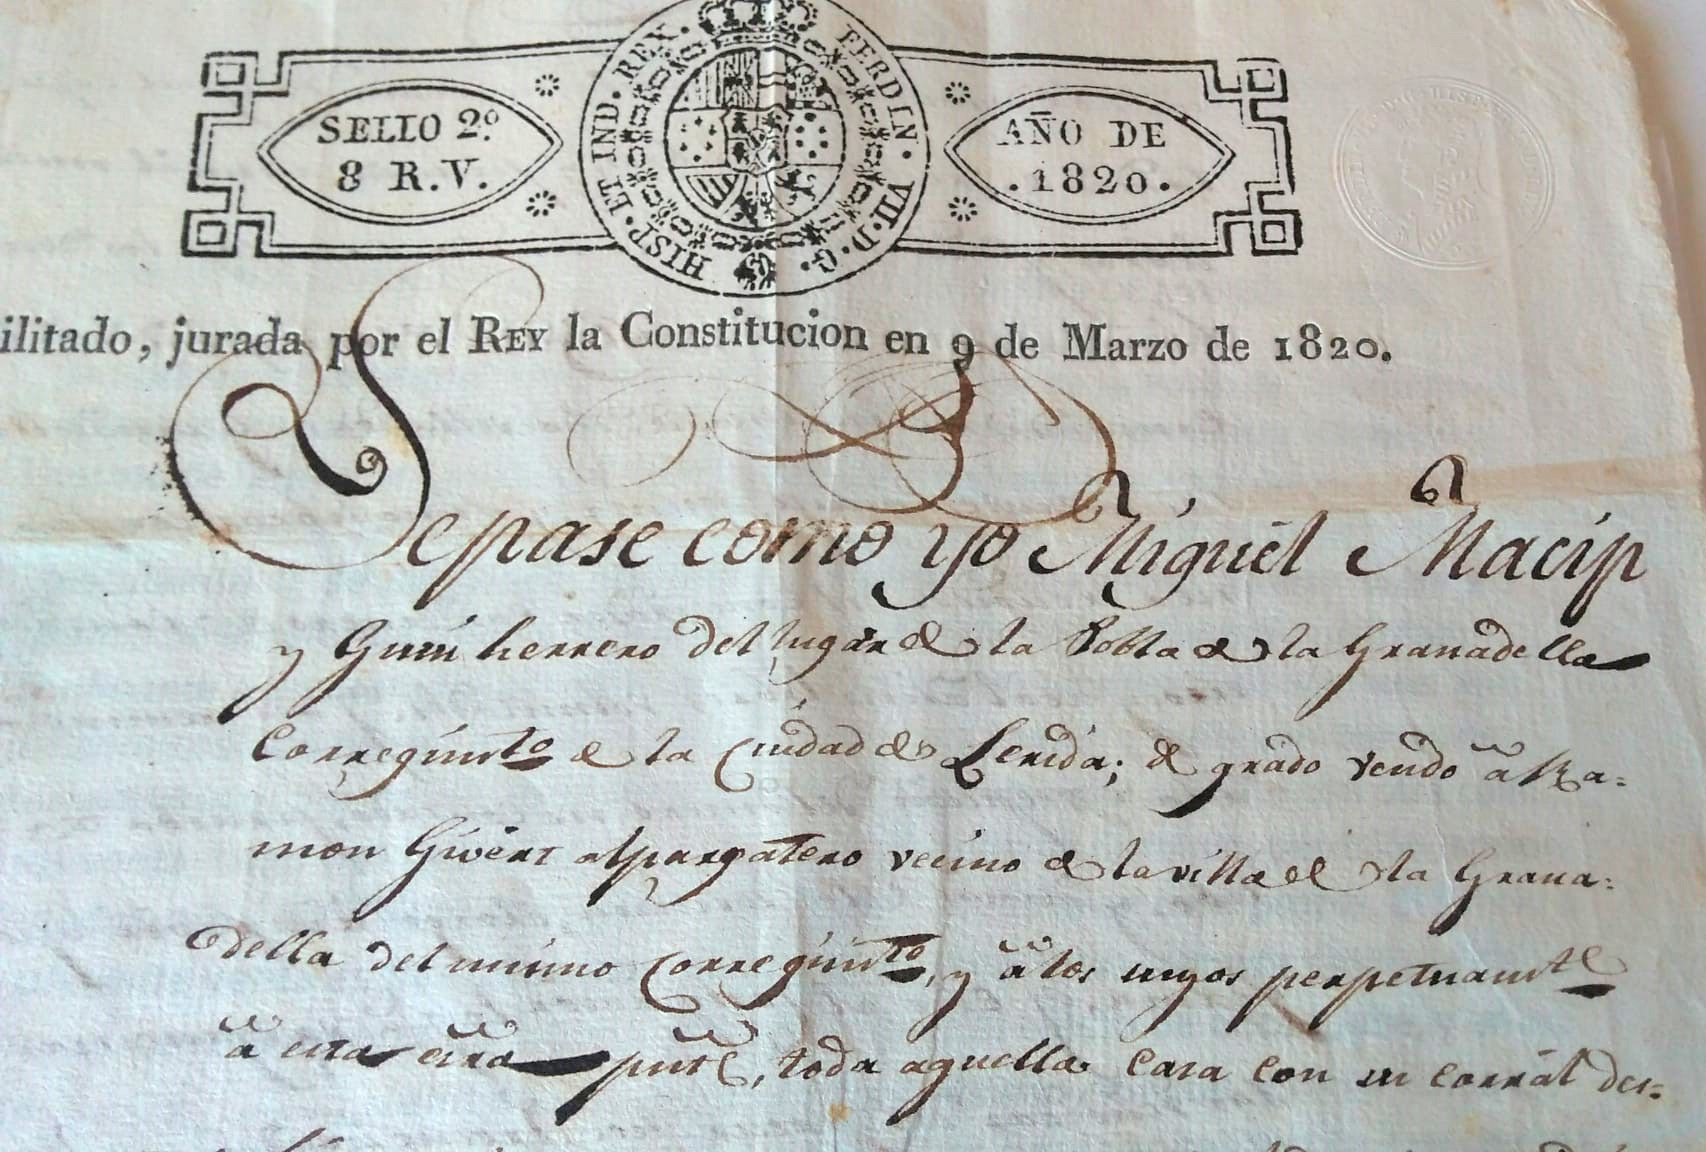 SELLO 2.º
8 R.V.
HISP. ET IND. REX.
FERDIN. VII. D. G.
AÑO DE
.1820.
ilitado, jurada por el REY la Constitucion en 9 de Marzo de 1820.
Sepase como yo Miguel Macip
y herrero del lugar de la Pobla de la Granadella
Corregim.to de la Ciudad de Lerida; de grado vendo à Ra=
mon Givert alpargatero vecino de la villa de la Grana=
della del mismo Corregim.to, y à los suyos perpetuam.te
à esta pnte, toda aquella casa con su corràl des=